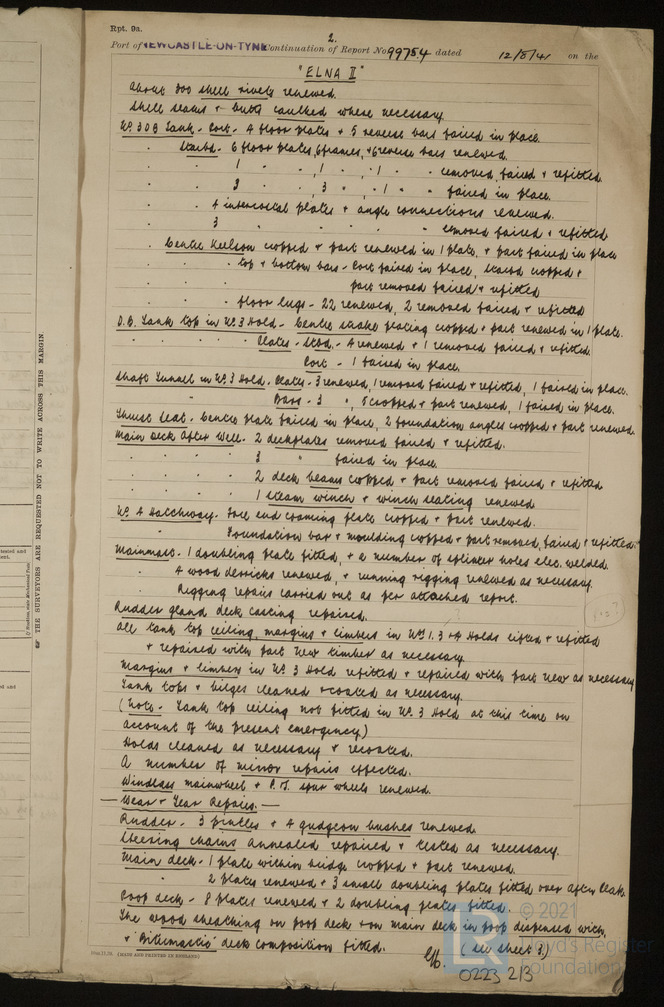 Rpt. 9a.
2.
Port of NEWCASTLE-ON-TYNE Continuation of Report No 99754 dated 12/8/41 on the
"ELNA II"
About 300 shell rivets renewed.
Shell seams + butts caulked where necessary.
No. 3 D.B. Tank - Port - 4 floor plates + 5 reverse bars faired in place.
" Starbd - 6 floor plates, 6 frames, + 6 reverse bars renewed.
" " 1 " " , 1 " , 1 " " removed, faired + refitted.
" " 3 " " , 3 " , 1 " " faired in place.
" " 4 intercostal plates + angle connections renewed.
" " 3 " " " " " removed faired + refitted
" Centre Keelson cropped + part renewed in 1 plate, + part faired in place
" " " top + bottom bars - Port faired in place, Starbd cropped +
" " " part removed faired + refitted
" " " floor lugs - 22 renewed, 2 removed faired + refitted
D.B. Tank top in No. 3 Hold - Centre strake plating cropped + part renewed in 1 plate.
" " " " " Plates - Stbd. - 4 renewed + 1 removed faired + refitted.
Port - 1 faired in place.
Shaft Tunnel in No. 3 Hold - Plates - 3 renewed, 1 removed faired + refitted, 1 faired in place.
" Bars - 3 " , 5 cropped + part renewed, 1 faired in place.
Thrust Seat - Centre plate faired in place, 2 foundation angles cropped + part renewed.
Main Deck After Well - 2 deckplates removed faired + refitted.
" " " " 3 " faired in place.
" " " " 2 deck beams cropped + part removed faired + refitted
" " " " 1 steam winch + winch seating renewed
No. 4 Hatchway - Fore end coaming plate cropped + part renewed.
" Foundation bar + moulding cropped + part removed, faired + refitted.
Mainmast - 1 doubling plate fitted, + a number of splinter holes elec. welded.
" 4 wood derricks renewed, + running rigging renewed as necessary.
" Rigging repairs carried out as per attached report.
Rudder gland deck casting repaired.
All tank top ceiling, margins + limbers in Nos 1. 3 + 4 Holds lifted + refitted
+ repaired with part new timber as necessary
Margins + limbers in No. 3 Hold refitted + repaired with part new as necessary
Tank tops + bilges cleaned + coated as necessary.
(Note - Tank top ceiling not fitted in No. 3 Hold at this time on
account of the present emergency)
Holds cleaned as necessary + recoated.
A number of minor repairs effected.
Windlass mainwheel + P. I. spur wheels renewed.
— Wear + Tear Repairs. —
Rudder - 3 pintles + 4 gudgeon bushes renewed.
Steering chains annealed repaired + tested as necessary.
Main deck - 1 plate within bridge cropped + part renewed.
" 2 plates renewed + 3 small doubling plates fitted over after peak.
Poop deck - 8 plates renewed + 2 doubling plates fitted.
The wood sheathing on poop deck + on main deck in poop dispensed with,
+ "Bitumastic" deck composition fitted.
(see sheet 3.)
(MADE AND PRINTED IN ENGLAND)
☞ THE SURVEYORS ARE REQUESTED NOT TO WRITE ACROSS THIS MARGIN.
© 2021
Lloyd's Register
Foundation
0223 2/3